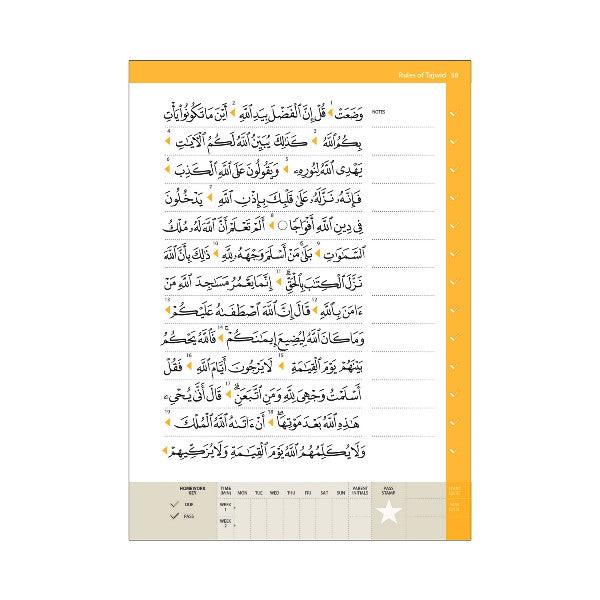 Rules of Tajwid 59
NOTES
وَضَعَتْ ١ قُلْ إِنَّ ٱلْفَضْلَ بِيَدِ ٱللَّهِ ٢ أَيْنَ مَا تَكُونُوا۟ يَأْتِ
بِكُمُ ٱللَّهُ ٣ كَذَٰلِكَ يُبَيِّنُ ٱللَّهُ لَكُمُ ٱلْآيَاتِ ٤
يَهْدِى ٱللَّهُ لِنُورِهِۦ ٥ وَيَقُولُونَ عَلَى ٱللَّهِ ٱلْكَذِبَ ٦
فَإِنَّهُۥ نَزَّلَهُۥ عَلَىٰ قَلْبِكَ بِإِذْنِ ٱللَّهِ ٧ يَدْخُلُونَ
فِى دِينِ ٱللَّهِ أَفْوَاجًا ٨ أَلَمْ تَعْلَمْ أَنَّ ٱللَّهَ لَهُۥ مُلْكُ
ٱلسَّمَٰوَٰتِ ٩ بَلَىٰ مَنْ أَسْلَمَ وَجْهَهُۥ لِلَّهِ ١٠ ذَٰلِكَ بِأَنَّ ٱللَّهَ
نَزَّلَ ٱلْكِتَٰبَ بِٱلْحَقِّ ١١ إِنَّمَا يَعْمُرُ مَسَٰجِدَ ٱللَّهِ مَنْ
ءَامَنَ بِٱللَّهِ ١٢ قَالَ إِنَّ ٱللَّهَ ٱصْطَفَىٰهُ عَلَيْكُمْ ١٣
وَمَا كَانَ ٱللَّهُ لِيُضِيعَ إِيمَٰنَكُمْ ١٤ فَٱللَّهُ يَحْكُمُ
بَيْنَهُمْ يَوْمَ ٱلْقِيَٰمَةِ ١٥ لَا يَرْجُونَ أَيَّامَ ٱللَّهِ ١٦ فَقُلْ
أَسْلَمْتُ وَجْهِىَ لِلَّهِ وَمَنِ ٱتَّبَعَنِ ١٧ قَالَ أَنَّىٰ يُحْىِۦ
هَٰذِهِ ٱللَّهُ بَعْدَ مَوْتِهَا ١٨ أَنْ ءَاتَىٰهُ ٱللَّهُ ٱلْمُلْكَ ١٩
وَلَا يُكَلِّمُهُمُ ٱللَّهُ يَوْمَ ٱلْقِيَٰمَةِ وَلَا يُزَكِّيهِمْ
HOMEWORK KEY TIME (MIN) MON TUE WED THU FRI SAT SUN PARENT INITIALS PASS STAMP
DUE WEEK 1
PASS WEEK 2